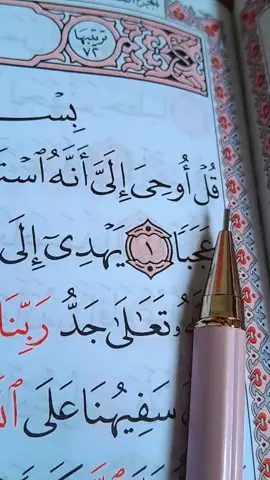 ترتيبها
٧٢
بِسْ
قُلْ أُوحِىَ إِلَىَّ أَنَّهُ ٱسْتَ
عَجَبًا ١ يَهْدِىٓ إِلَى
وَتَعَٰلَىٰ جَدُّ رَبِّنَا
سَفِيهُنَا عَلَى